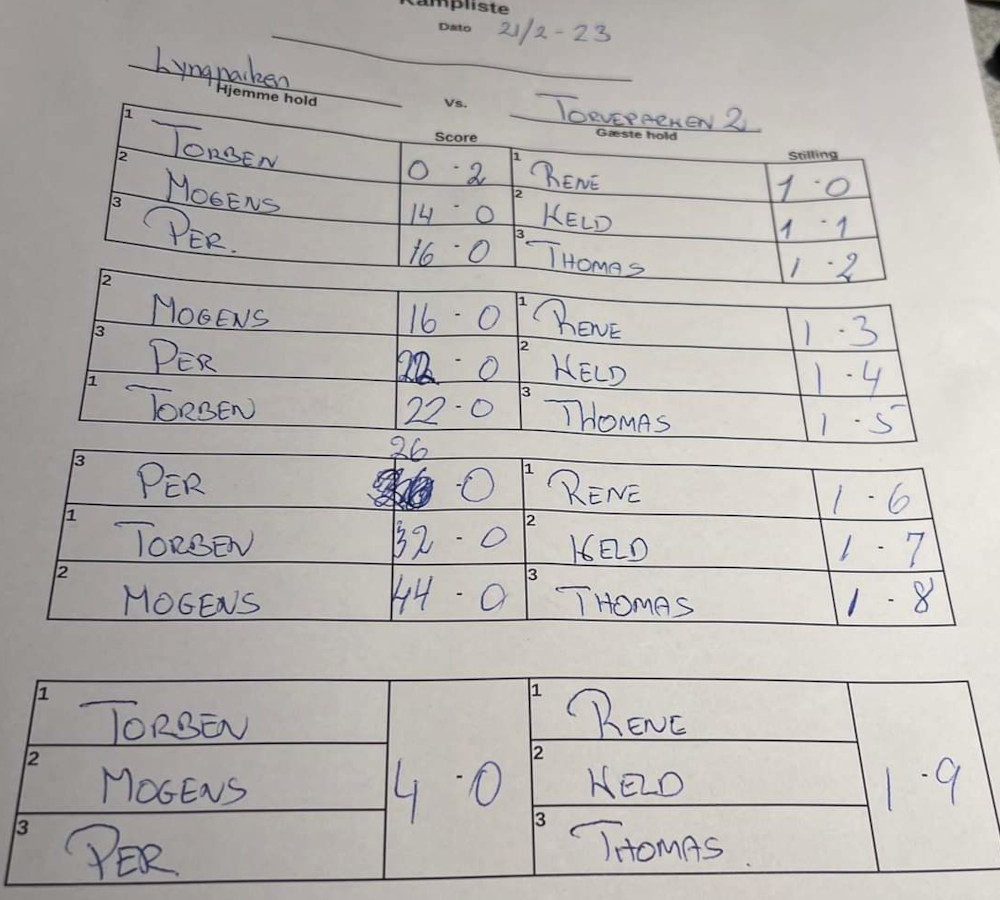 Kampliste
Dato 21/2-23
Lyngparken Vs. TORVEPARKEN 2
Hjemme hold Gæste hold
Score Stilling
1 TORBEN 0 - 2 1 RENE 1 - 0
2 MOGENS 14 - 0 2 KELD 1 - 1
3 PER. 16 - 0 3 THOMAS 1 - 2
2 MOGENS 16 - 0 1 RENE 1 - 3
3 PER 22 - 0 2 KELD 1 - 4
1 TORBEN 22 - 0 3 THOMAS 1 - 5
26
3 PER - 0 1 RENE 1 - 6
1 TORBEN 32 - 0 2 KELD 1 - 7
2 MOGENS 44 - 0 3 THOMAS 1 - 8
1 TORBEN 1 RENE
2 MOGENS 4 - 0 2 KELD 1 - 9
3 PER. 3 THOMAS.